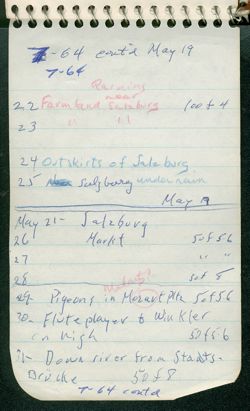 7-64 contd May 19
7-64
Raining
near
22 Farmland Salzburg 100 of 4
23 " "
24 Outskirts of Salzburg
25 Salzburg under rain
May 19
May 21- Salzburg
26 Markt 50 of 56
27 " "
28 50 of 8
29- Pigeons in Mozart Pltz 50 of 56
30- Flute player & Winkler
on high 50 of 56
31- Down river from Staats-
Brücke 50 of 8
7-64 contd